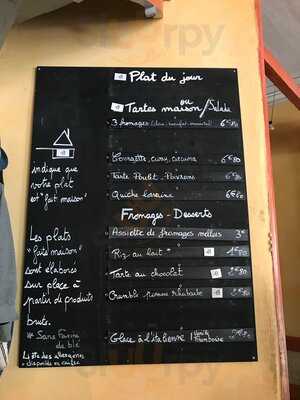 Plat du jour
ou
Tartes maison / Salade
3 fromages
Courgette, curry, curcuma 6€80
Tarte Poulet - Poivrons 6€80
Quiche lorraine 6€80
Fromages - Desserts
Assiette de fromages 3€
Riz au lait
Tarte au chocolat
Crumble pomme rhubarbe
Glace à l'italienne Vanille
Framboise
indique que
votre plat
est "fait maison"
Les plats
"faits maison"
sont élaborés
sur place à
partir de produits
bruts.
Sans Farine
de blé
Liste des allergènes
disponible en caisse